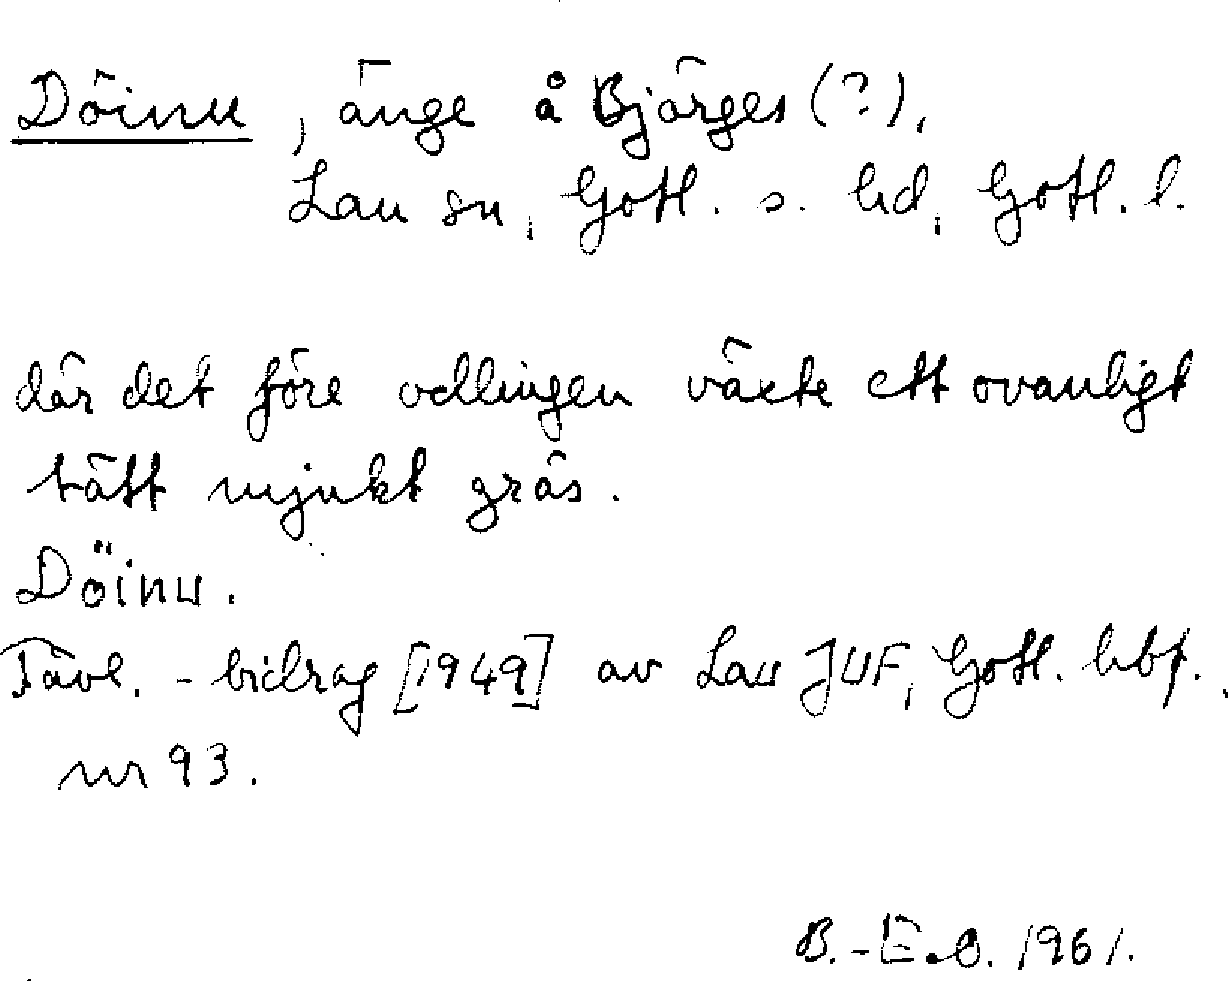 Döinu, änge å Bjärges (?),
Lau sn, Gotl. s. hd, Gotl. l.
där det före odlingen växte ett ovanligt
tätt mjukt gräs.
Döinu.
Tävl.-bidrag [1949] av Lau JUF, Gotl. hbf.
nr 93.
B.-E.O. 1961.